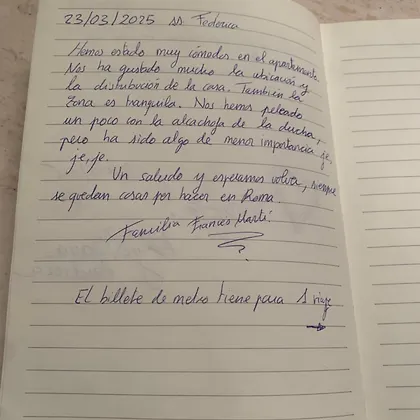 23/03/2025 ss Federica
Hemos estado muy cómodos en el apartamento
Nos ha gustado mucho la ubicación y
la distribución de la casa. También la
zona es tranquila. Nos hemos peleado
un poco con la alcachofa de la ducha,
pero ha sido algo de menor importancia je,
je, je.
Un saludo y esperamos volver, siempre
se quedan cosas por hacer en Roma.
Familia Francés Martí
El billete de metro tiene para 1 viaje
→